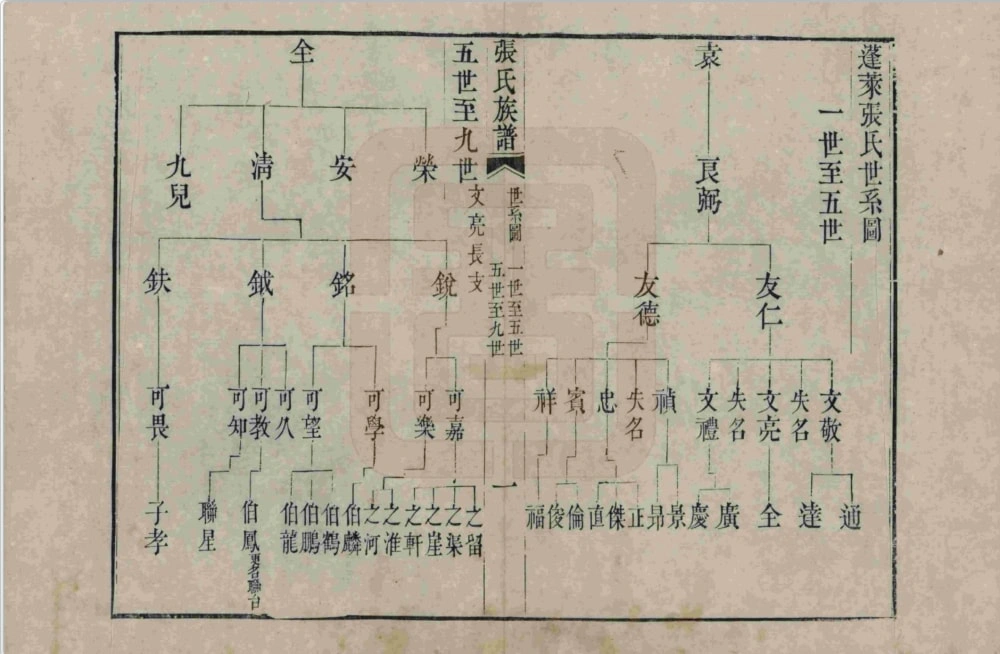 蓬萊張氏世系圖
一世至五世
袁
良弼
友仁
友德
文敬
失名
文亮
失名
文禮
禎
失名
忠
賓
祥
通
達
全
廣
慶
景
昴
正
傑
直
倫
俊
福
張氏族譜
世系圖
一世至五世
五世至九世
一
五世至九世
文亮長支
全
榮
安
清
九兒
銳
銘
鉞
鈇
可嘉
可樂
可學
可望
可久
可教
可知
可畏
之留
之渠
之崖
之軒
之淮
之河
伯麟
伯鶴
伯鵬
伯龍
伯鳳更名聯台
聯星
子孝